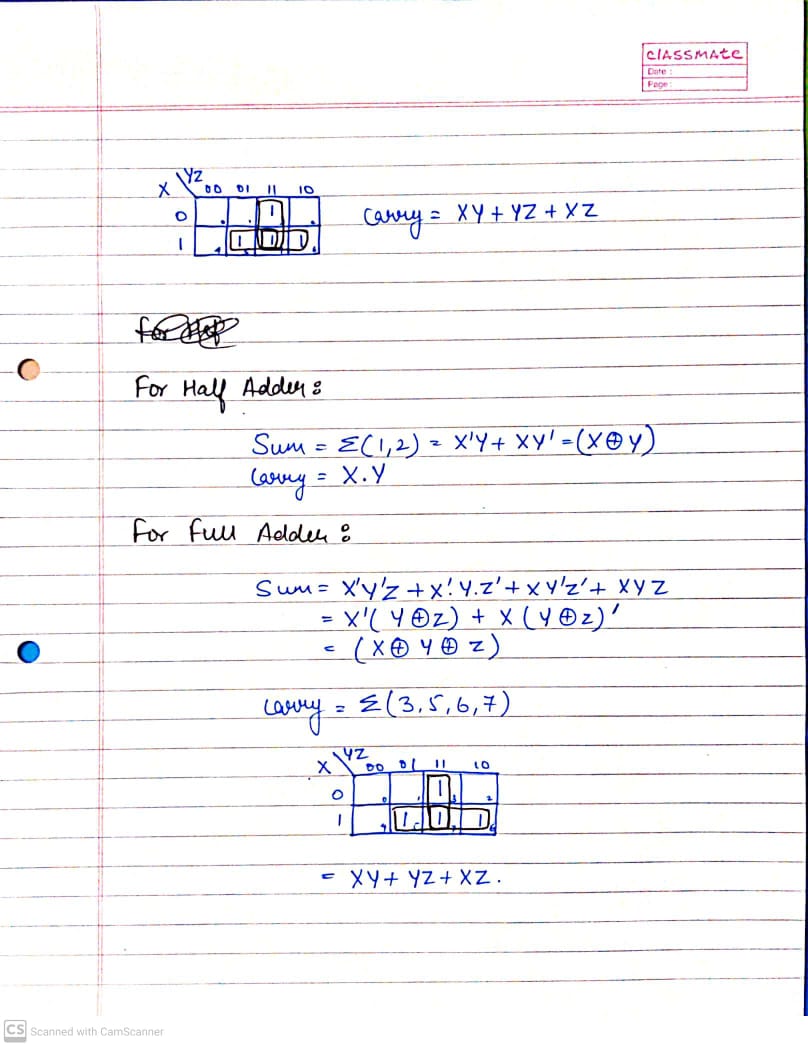 CLASSMATE
Date :
Page :
X \ YZ 00 01 11 10
0 1
1 1 1 1
Carry = XY + YZ + XZ
For Half Adder :
Sum = Σ(1,2) = X'Y + XY' = (X⊕Y)
Carry = X.Y
For Full Adder :
Sum = X'Y'Z + X'.Y.Z' + XY'Z' + XYZ
= X'(Y⊕Z) + X(Y⊕Z)'
= (X⊕Y⊕Z)
Carry = Σ(3,5,6,7)
X \ YZ 00 01 11 10
0 0 1 1 3 2
1 4 1 5 1 7 1 6
= XY + YZ + XZ.
CS Scanned with CamScanner